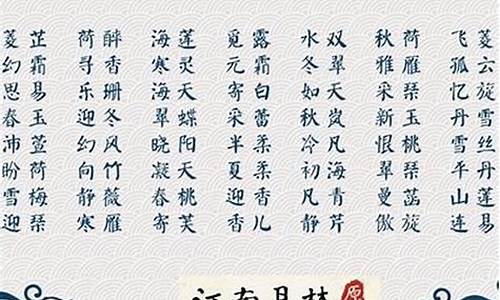 菱芷 荷醉 海莲 觅露 水双 秋荷 飞菱
幻霜 寻香 寒灵 元霜 冬翠 雅雁 孤云
思易 乐珊 海天 寄白 如天 采琹 忆旋
春玉 迎冬 翠蝶 采蕾 秋岚 新玉 丹雪
沛萱 幻风 晓阳 半柔 冷凡 恨桃 雪丝
盼荷 向竹 凝天 夏柔 初海 翠琹 平丹
雪梅 静薇 春桃 迎香 凡青 曼菡 山莲
迎琹 寒雁 寄芙 香儿 静芹 傲旋 连易
原